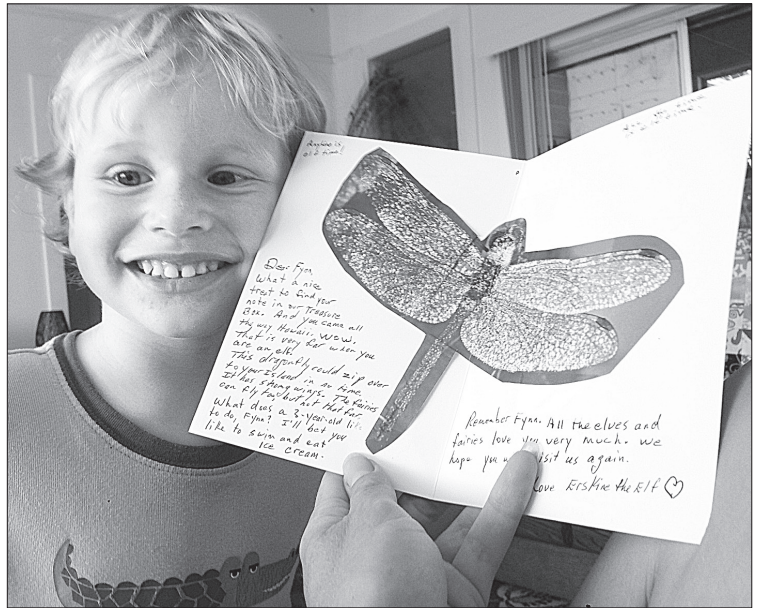 Dear Fynn,
What a nice
treat to find your
note in our Treasure
Box. And you came all
the way Hawaii. Wow.
That is very far when you
are an elf.
This dragonfly could zip over
to your Island in no time.
It has strong wings. The fairies
can fly far but not that far
What does a 3-year-old li
to do, Fynn? I'll bet you
like to swim and eat
Ice cream.
Remember Fynn. All the elves and
fairies love you very much. We
hope you w isit us again.
Love Erskine the Elf